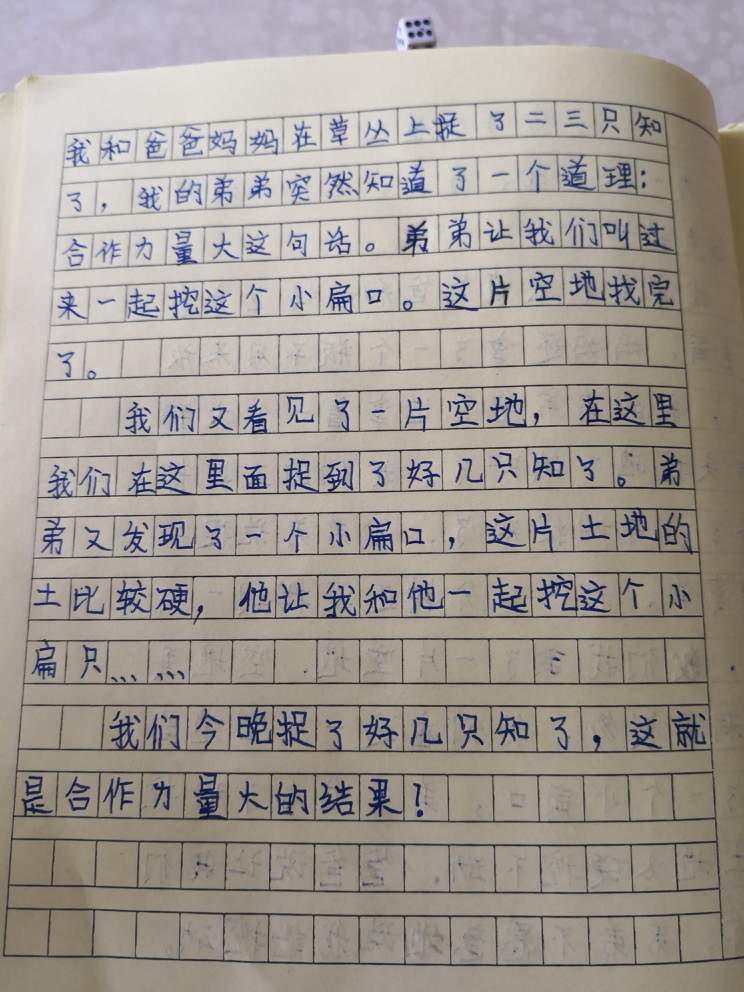 我和爸爸妈妈在草丛上捉了二三只知
了，我的弟弟突然知道了一个道理：
合作力量大这句话。弟弟让我们叫过
来一起挖这个小扁口。这片空地找完
了。
我们又看见了一片空地，在这里
我们在这里面捉到了好几只知了。弟
弟又发现了一个小扁口，这片土地的
土比较硬，他让我和他一起挖这个小
扁只……
我们今晚捉了好几只知了，这就
是合作力量大的结果！